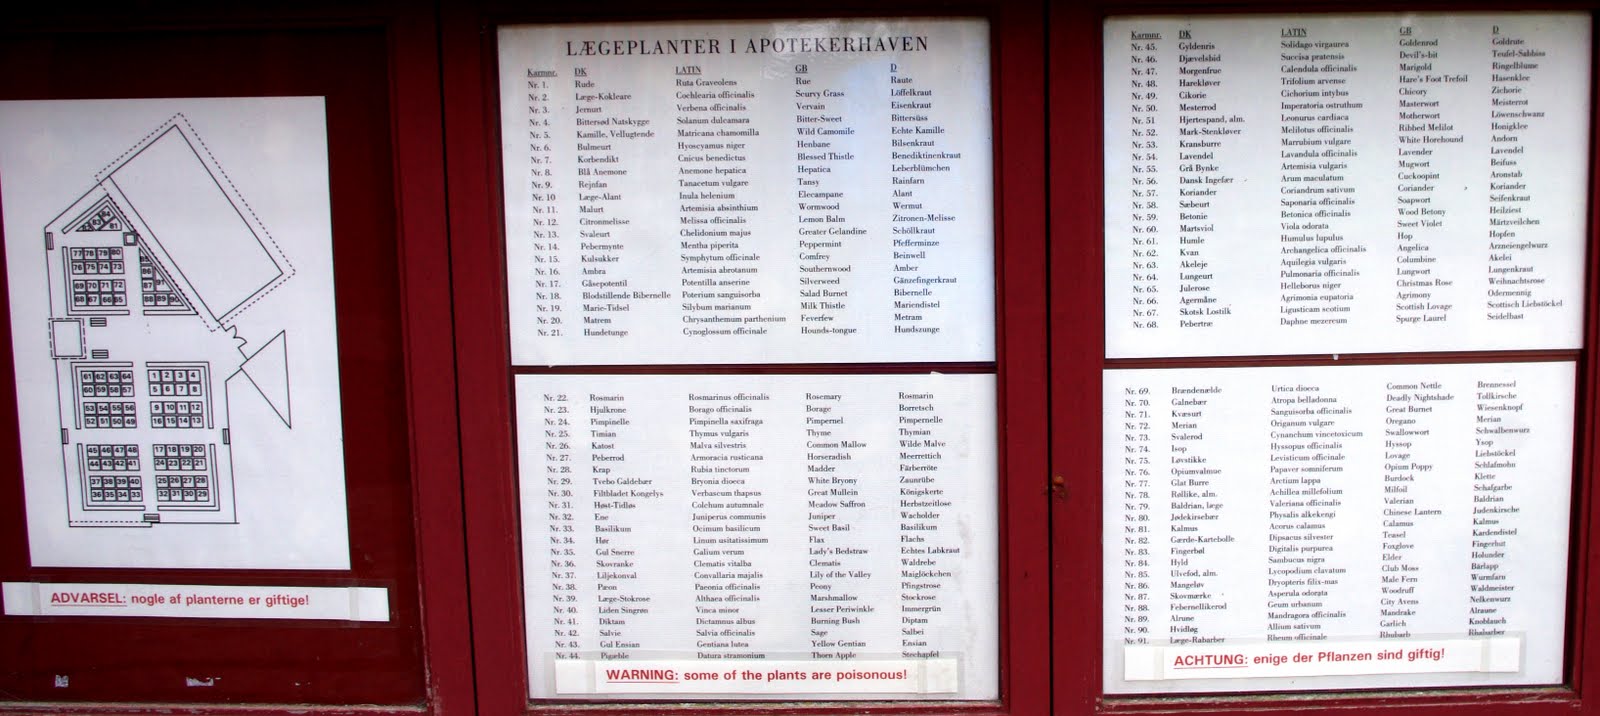 ADVARSEL: nogle af planterne er giftige!
LÆGEPLANTER I APOTEKERHAVEN
Karmnr. DK LATIN GB D
Nr. 1. Rude Ruta Graveolens Rue Raute
Nr. 2. Læge-Kokleare Cochlearia officinalis Scurvy Grass Löffelkraut
Nr. 3. Jernurt Verbena officinalis Vervain Eisenkraut
Nr. 4. Bittersød Natskygge Solanum dulcamara Bitter-Sweet Bittersüss
Nr. 5. Kamille, Vellugtende Matricana chamomilla Wild Camomile Echte Kamille
Nr. 6. Bulmeurt Hyoscyamus niger Henbane Bilsenkraut
Nr. 7. Korbendikt Cnicus benedictus Blessed Thistle Benediktinenkraut
Nr. 8. Blå Anemone Anemone hepatica Hepatica Leberblümchen
Nr. 9. Rejnfan Tanacetum vulgare Tansy Rainfarn
Nr. 10 Læge-Alant Inula helenium Elecampane Alant
Nr. 11. Malurt Artemisia absinthium Wormwood Wermut
Nr. 12. Citronmelisse Melissa officinalis Lemon Balm Zitronen-Melisse
Nr. 13. Svaleurt Chelidonium majus Greater Gelandine Schöllkraut
Nr. 14. Pebermynte Mentha piperita Peppermint Pfefferminze
Nr. 15. Kulsukker Symphytum officinale Comfrey Beinwell
Nr. 16. Ambra Artemisia abrotanum Southernwood Amber
Nr. 17. Gåsepotentil Potentilla anserine Silverweed Gänzefingerkraut
Nr. 18. Blodstillende Bibernelle Poterium sanguisorba Salad Burnet Bibernelle
Nr. 19. Marie-Tidsel Silybum marianum Milk Thistle Mariendistel
Nr. 20. Matrem Chrysanthemum parthenium Feverfew Metram
Nr. 21. Hundetunge Cynoglossum officinale Hounds-tongue Hundszunge
Nr. 22. Rosmarin Rosmarinus officinalis Rosemary Rosmarin
Nr. 23. Hjulkrone Borago officinalis Borage Borretsch
Nr. 24. Pimpinelle Pimpinella saxifraga Pimpernel Pimpernelle
Nr. 25. Timian Thymus vulgaris Thyme Thymian
Nr. 26. Katost Malva silvestris Common Mallow Wilde Malve
Nr. 27. Peberrod Armoracia rusticana Horseradish Meerrettich
Nr. 28. Krap Rubia tinctorum Madder Färberröte
Nr. 29. Tvebo Galdebær Bryonia dioeca White Bryony Zaunrübe
Nr. 30. Filtbladet Kongelys Verbascum thapsus Great Mullein Königskerte
Nr. 31. Høst-Tidløs Colchum autumnale Meadow Saffron Herbstzeitlose
Nr. 32. Ene Juniperus communis Juniper Wacholder
Nr. 33. Basilikum Ocimum basilicum Sweet Basil Basilikum
Nr. 34. Hør Linum usitatissimum Flax Flachs
Nr. 35. Gul Snerre Galium verum Lady's Bedstraw Echtes Labkraut
Nr. 36. Skovranke Clematis vitalba Clematis Waldrebe
Nr. 37. Liljekonval Convallaria majalis Lily of the Valley Maiglöckchen
Nr. 38. Pæon Paeonia officinalis Peony Pfingstrose
Nr. 39. Læge-Stokrose Althaea officinalis Marshmallow Stockrose
Nr. 40. Liden Singrøn Vinca minor Lesser Periwinkle Immergrün
Nr. 41. Diktam Dictamnus albus Burning Bush Diptam
Nr. 42. Salvie Salvia officinalis Sage Salbei
Nr. 43. Gul Ensian Gentiana lutea Yellow Gentian Ensian
Nr. 44. Pigæble Datura stramonium Thorn Apple Stechapfel
WARNING: some of the plants are poisonous!
Karmnr. DK LATIN GB D
Nr. 45. Gyldenris Solidago virgaurea Goldenrod Goldrute
Nr. 46. Djævelsbid Succisa pratensis Devil's-bit Teufel-Sabbiss
Nr. 47. Morgenfrue Calendula officinalis Marigold Ringelblume
Nr. 48. Harekløver Trifolium arvense Hare's Foot Trefoil Hasenklee
Nr. 49. Cikorie Cichorium intybus Chicory Zichorie
Nr. 50. Mesterrod Imperatoria ostruthum Masterwort Meisterrot
Nr. 51 Hjertespand, alm. Leonurus cardiaca Motherwort Löwenschwanz
Nr. 52. Mark-Stenkløver Melilotus officinalis Ribbed Melilot Honigklee
Nr. 53. Kransburre Marrubium vulgare White Horehound Andorn
Nr. 54. Lavendel Lavandula officinalis Lavender Lavendel
Nr. 55. Grå Bynke Artemisia vulgaris Mugwort Beifuss
Nr. 56. Dansk Ingefær Arum maculatum Cuckoopint Aronstab
Nr. 57. Koriander Coriandrum sativum Coriander Koriander
Nr. 58. Sæbeurt Saponaria officinalis Soapwort Seifenkraut
Nr. 59. Betonie Betonica officinalis Wood Betony Heilziest
Nr. 60. Martsviol Viola odorata Sweet Violet Märtzveilchen
Nr. 61. Humle Humulus lupulus Hop Hopfen
Nr. 62. Kvan Archangelica officinalis Angelica Arzneiengelwurz
Nr. 63. Akeleje Aquilegia vulgaris Columbine Akelei
Nr. 64. Lungeurt Pulmonaria officinalis Lungwort Lungenkraut
Nr. 65. Julerose Helleborus niger Christmas Rose Weihnachtsrose
Nr. 66. Agermåne Agrimonia eupatoria Agrimony Odermennig
Nr. 67. Skotsk Lostilk Ligusticum scotium Scottish Lovage Scottisch Liebstöckel
Nr. 68. Pebertræ Daphne mezereum Spurge Laurel Seidelbast
Nr. 69. Brændenælde Urtica dioeca Common Nettle Brennessel
Nr. 70. Galnebær Atropa belladonna Deadly Nightshade Tollkirsche
Nr. 71. Kvæsurt Sanguisorba officinalis Great Burnet Wiesenknopf
Nr. 72. Merian Origanum vulgare Oregano Merian
Nr. 73. Svalerod Cynanchum vincetoxicum Swallowwort Schwalbenwurz
Nr. 74. Isop Hyssopus officinalis Hyssop Ysop
Nr. 75. Løvstikke Levisticum officinale Lovage Liebstöckel
Nr. 76. Opiumvalmue Papaver somniferum Opium Poppy Schlafmohn
Nr. 77. Glat Burre Arctium lappa Burdock Klette
Nr. 78. Røllike, alm. Achillea millefolium Milfoil Schafgarbe
Nr. 79. Baldrian, læge Valeriana officinalis Valerian Baldrian
Nr. 80. Jødekirsebær Physalis alkekengi Chinese Lantern Judenkirsche
Nr. 81. Kalmus Acorus calamus Calamus Kalmus
Nr. 82. Gærde-Kartebolle Dipsacus silvester Teasel Kardendistel
Nr. 83. Fingerbøl Digitalis purpurea Foxglove Fingerhut
Nr. 84. Hyld Sambucus nigra Elder Holunder
Nr. 85. Ulvefod, alm. Lycopodium clavatum Club Moss Bärlapp
Nr. 86. Mangeløv Dryopteris filix-mas Male Fern Wurmfarn
Nr. 87. Skovmærke Asperula odorata Woodruff Waldmeister
Nr. 88. Febernellikerod Geum urbanum City Avens Nelkenwurz
Nr. 89. Alrune Mandragora officinalis Mandrake Alraune
Nr. 90. Hvidløg Allium sativum Garlich Knoblauch
Nr. 91. Læge-Rabarber Rheum officinale Rhubarb Rhabarber
ACHTUNG: enige der Pflanzen sind giftig!